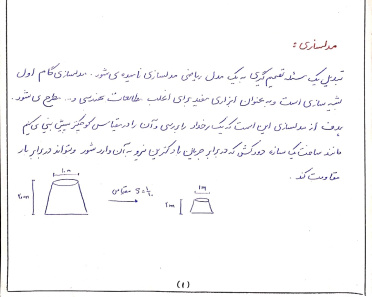 مدلسازی :
تبدیل یک مسئله تصمیم گیری به یک مدل ریاضی مدلسازی نامیده می شود . مدلسازی گام اول
شبیه سازی است و به عنوان ابزاری مفید برای اغلب مطالعات هندسی و... مطرح می شود .
هدف از مدلسازی این است که یک رخداد را بررسی و آن را در مقیاس کوچکتر پیش بینی کنیم
مانند ساخت یک سازه دودکش که در برابر جریان باد کمترین نیرو به آن وارد شود و بتواند در برابر باد
مقاومت کند .
۱۰m
۲۰m
مقیاس
۱m
۲m
(۱)